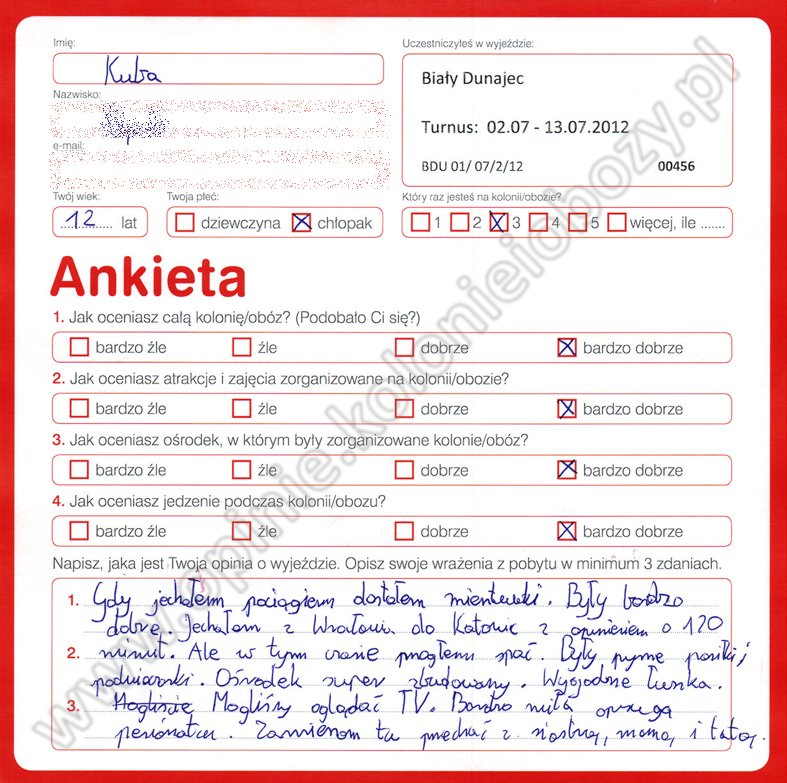 Imię:
Kuba
Nazwisko:
e-mail:
Uczestniczyłeś w wyjeździe:
Biały Dunajec
Turnus: 02.07 - 13.07.2012
BDU 01/ 07/2/12 00456
Twój wiek: Twoja płeć: Który raz jesteś na kolonii/obozie?
12 lat dziewczyna chłopak 1 2 3 4 5 więcej, ile .......
Ankieta
1. Jak oceniasz całą kolonię/obóz? (Podobało Ci się?)
bardzo źle źle dobrze bardzo dobrze
2. Jak oceniasz atrakcje i zajęcia zorganizowane na kolonii/obozie?
bardzo źle źle dobrze bardzo dobrze
3. Jak oceniasz ośrodek, w którym były zorganizowane kolonie/obóz?
bardzo źle źle dobrze bardzo dobrze
4. Jak oceniasz jedzenie podczas kolonii/obozu?
bardzo źle źle dobrze bardzo dobrze
Napisz, jaka jest Twoja opinia o wyjeździe. Opisz swoje wrażenia z pobytu w minimum 3 zdaniach.
1. Gdy jechałem pociągiem dostałem Były bardzo
dobre. Jechałem z do Katowic z o 120
2. minut. Ale w tym czasie mogłem spać. Były pyszne posiłki i
podwieczorki. Ośrodek super zbudowany. Wygodne łużka.
3. Mogliśmy oglądać TV. Bardzo miła
Zamierzam tu z siostrą, mamą i tatą.
www.opinie.kolonieiobozy.pl